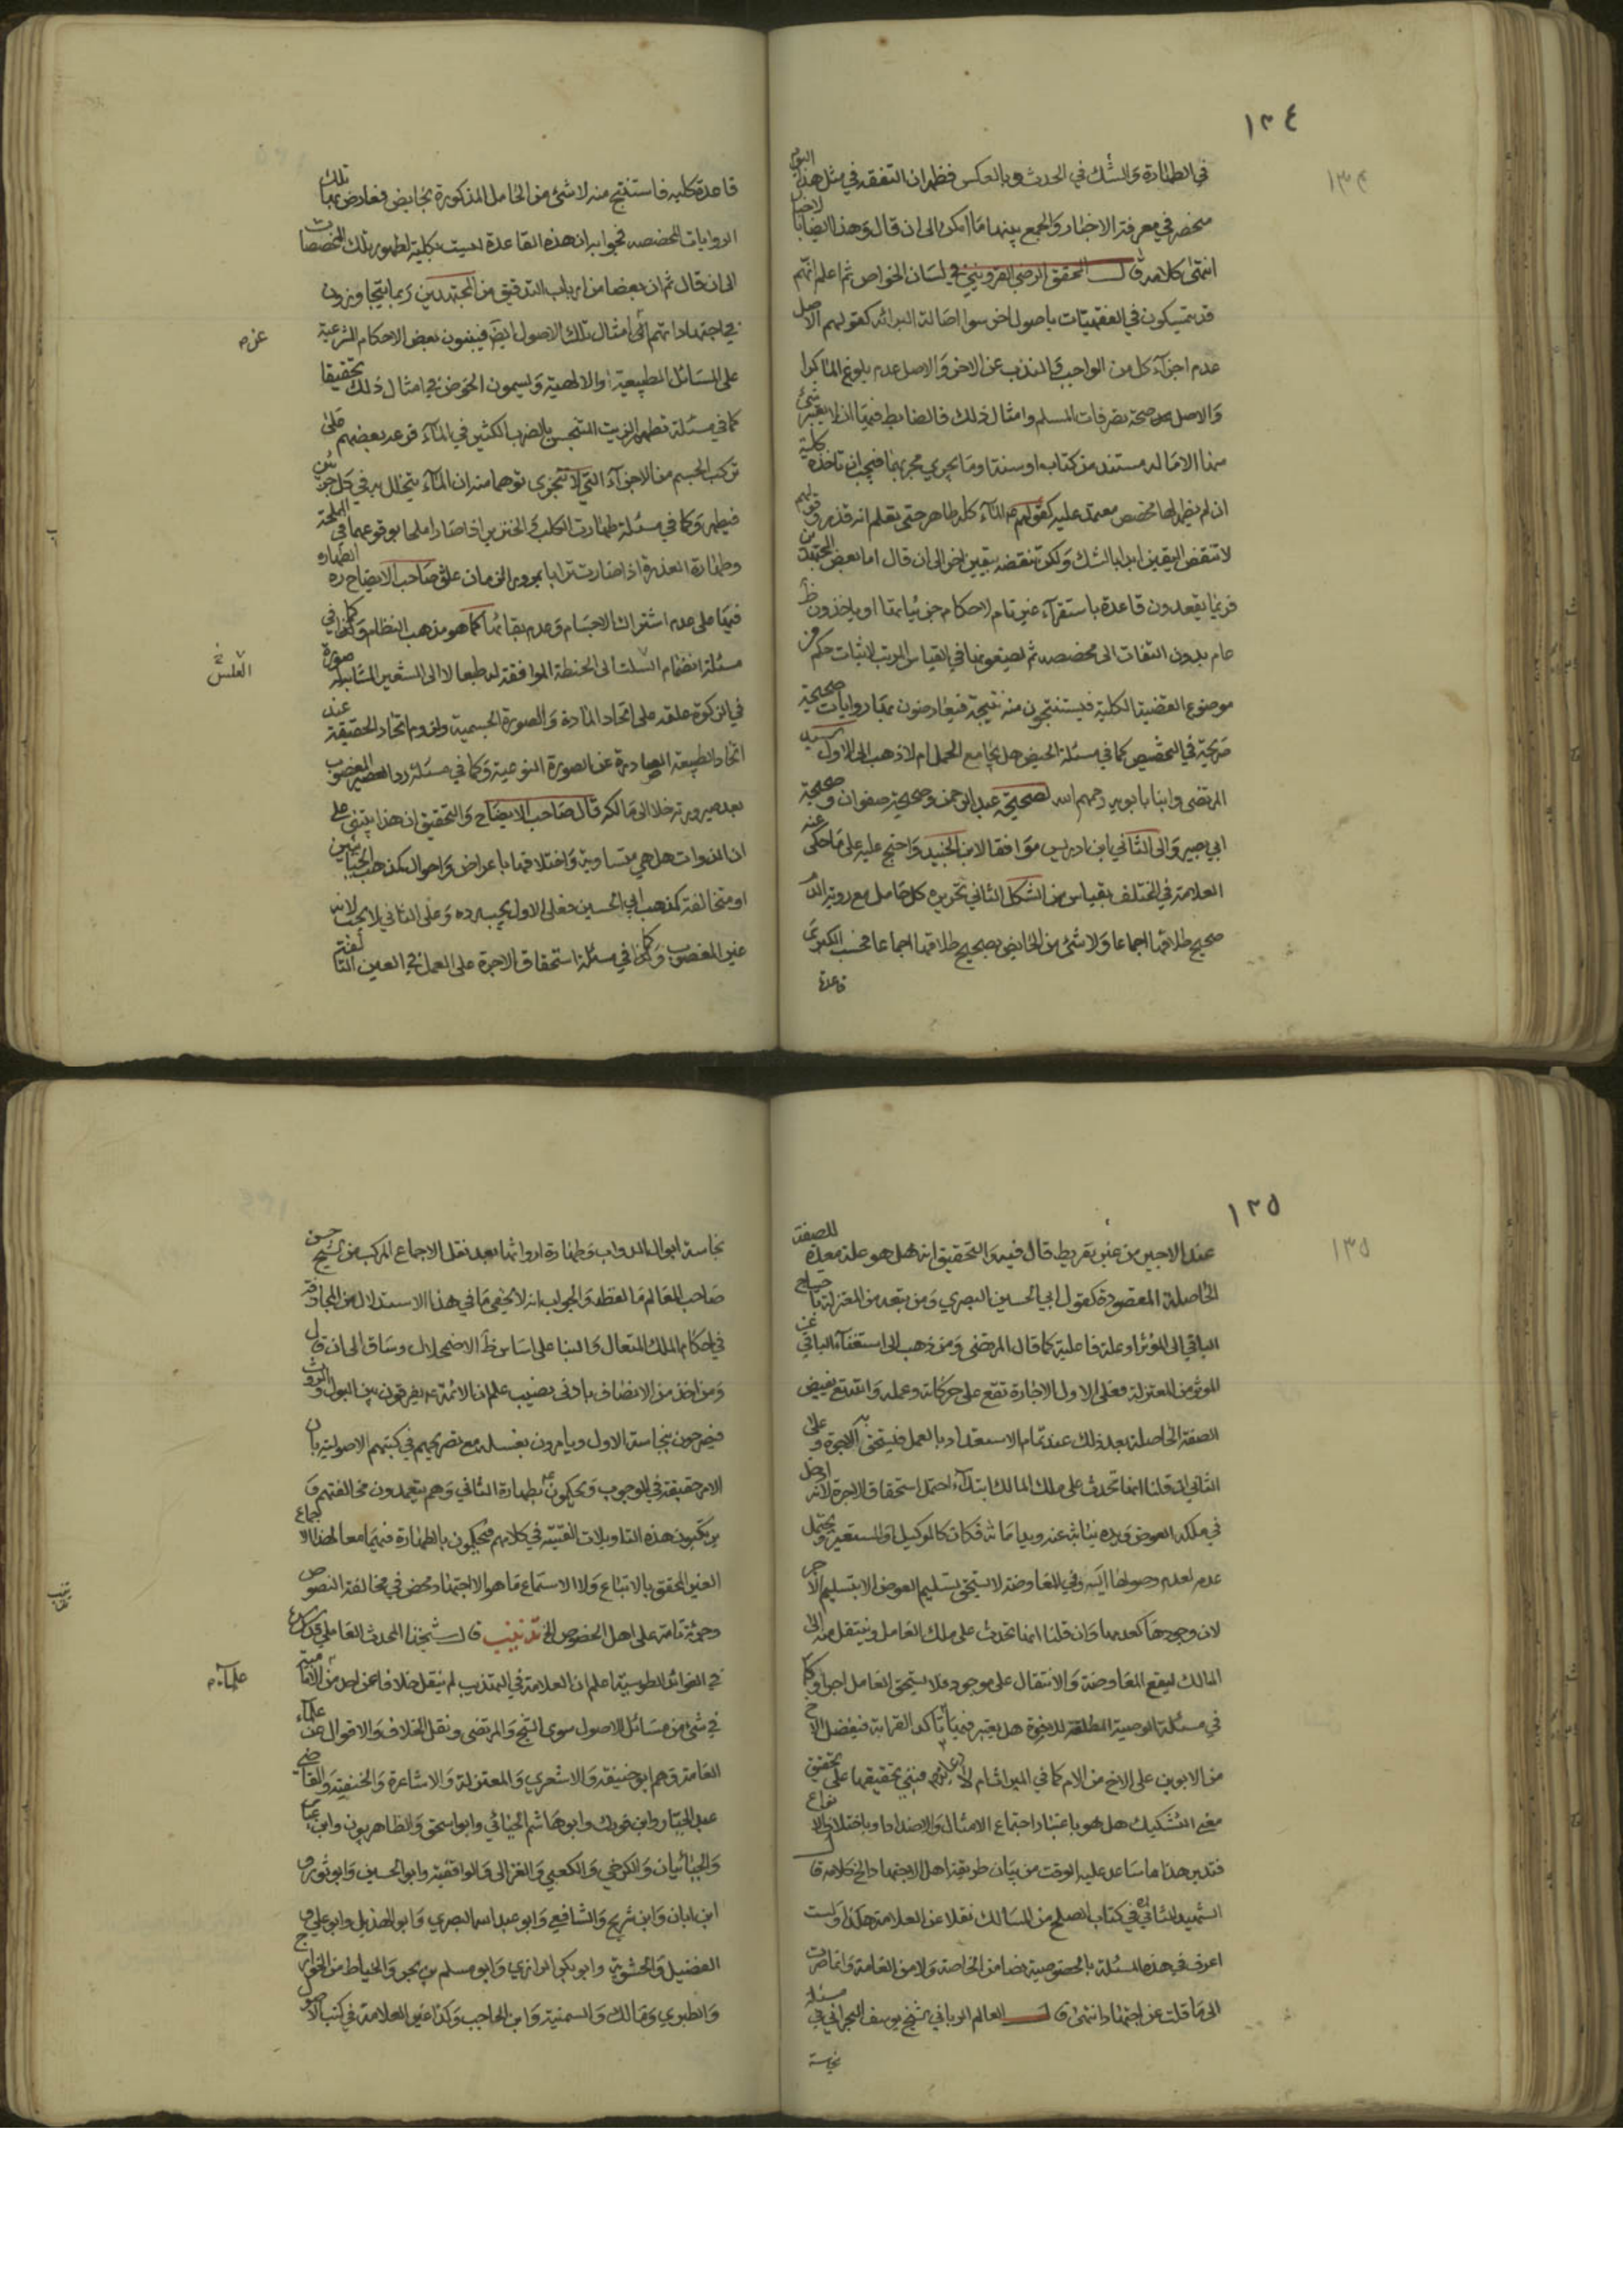 ١٣٤
في الطهارة والشك في الحدث وبالعكس فظهر ان التفقه في مثل هذا اليوم
منحصر في معرفة الاخبار والجمع بينهما ما امكن الى ان قال وهذا ايضا
انتهى كلامه قال المحقق الرضي القزويني في لسان الخواص ثم اعلم انهم
قد يتمسكون في الفقهيات باصول اخر سوا اصالة البرائه كقولهم الاصل
عدم اجزآء كل من الواجب والمندب عن الاخر والاصل عدم بلوغ المآء كرا
والاصل صحة تصرفات المسلم وامثال ذلك فالضابط فيها ان لا يعتبر شئ
منها الا ما له مستند من كتاب او سنة او ما يجري مجريهما فيجب ان تاخذه كلية
ان لم يظهر لها مخصص معتمد عليه كقولهم عم المآء كله طاهر حتى يعلم انه قذر وقولهم
لا تنقض اليقين ابدا بالشك ولكن تنقضه بيقين اخر الى ان قال اما بعض المجتهدين
فربما يقعدون قاعدة باستقرآء غير تام لاحكام جزئياتها او ياخذون
عام بدون التفات الى مخصصه ثم يضيعونها في القياس المرتب لاثبات حكم
موضوع القضية الكلية فيستنتجون منه نتيجة فيعارضون بها روايات صحيحة
صريحة في التخصيص كما في مسئلة الحيض هل يجامع الحمل ام لا ذهب الى الاول السيد
المرتضى وابنا بابويه رحمهم الله لصحيحة عبد الرحمن وصحيحة صفوان وصحيحة
ابي بصير والى الثاني ابن ادريس موافقا لابن الجنيد واحتج عليه على ما حكى عنه
العلامة في المختلف بقياس من الشكل الثاني تحريره كل حامل مع رؤية الدم
صحيح طلاقها اجماعا ولا شئ من الحايض بصحيح طلاقها اجماعا فحسب الكبرى
قاعدة
قاعدة كليه فاستنتج منه لا شئ من الحامل المذكورة بحايض فعارض بها تلك
الروايات المخصصه فجوابه ان هذه القاعدة ليست بكلية لظهور تلك المخصصات
الى ان قال ثم ان بعضا من ارباب التدقيق من المجتهدين ربما يتجاوزون
في اجتهاداتهم الى امثال تلك الاصول ايض فيبنون بعض الاحكام الشرعية
على المسائل الطبيعية او الالهية ويسمون الخوض في امثال ذلك تحقيقا
كما في مسئلة تطهير الزيت النجس بالضرب الكثير في المآء فرعه بعضهم على
تركب الجسم من الاجزآء التي لا تتجزى توهما منه ان المآء يتخلل به في كل جزء
فيطهر وكما في مسئلة طهارت الكلب والخنزير اذا صارا ملحا بوقوعهما في الملحة
وطهارة العذرة اذا صارت ترابا بمرور الزمان علق صاحب الايضاح ره الطهاره
فيها على عدم اشتراك الاجسام وعدم بقائها كما هو مذهب النظام وكما في
مسئلة انضمام السلت الى الحنطة الموافقة له طبعا لا الى الشعير المشابه له صورة
في الزكوة علقه على اتحاد المادة والصورة الجسمية ولزوم اتحاد الحقيقة عند
اتحاد الطبيعة الصادرة عن الصورة النوعية وكما في مسئلة رد العصير المغصوب
بعد صيرورته خلا الى مالكه قال صاحب الايضاح والتحقيق ان هذا يبتنى على
ان الذوات هل هي متساوية واختلافها باعراض واحوال كمذهب الجبائيين
او متخالفة كمذهب ابي الحسين فعلى الاول يجب رده وعلى الثاني لا يجب لانه
غير المغصوب وكما في مسئلة استحقاق الاجرة على العمل في العين التالفة
١٣٥
عند الاجير من غير تفريط قال فيه والتحقيق انه هل هو علة معدة للصفة
الحاصلة المقصودة كقول ابي الحسين البصري ومن تبعه من المعتزلة باحتياج
الباقي الى المؤثر او علة فاعلية كما قال المرتضى ومن ذهب الى استغنآء الباقي عن
المؤثر من المعتزلة فعلى الاول الاجارة تقع على حركاته وعمله والله تع يفيض
الصفة الحاصلة بعد ذلك عند تمام الاستعداد بالعمل فيستحق به الاجرة وعلى
الثاني ان قلنا انها تحدث على ملك المالك ابتدآء احتمل استحقاق الاجرة لانه ادخل
في ملكه العوض ويده نيابة عنه ويد امانة فكان كالوكيل او المستعير ويحتمل
عدمه لعدم وصولها اليه وفي المعاوضة لا يستحق بتسليم العوض الا بتسليم الاخر
لان وجودها كعدمها وان قلنا انها تحدث على ملك العامل وينتقل منه الى
المالك ليقع المعاوضة والانتقال على موجود فلا يستحق العامل اجرا وكما
في مسئلة الوصية المطلقة للاخوة هل يعتبر فيها تأكد القرابة فيفضل الاخ
من الابوين على الاخ من الام كما في الميراث ام لا فبنى تحقيقها على تحقيق
معنى التشكيك هل هو باعتبار اجتماع الامثال والاضداد او باختلاف الانواع
فتدبر هذا ما ساعد عليه الوقت من بيان طريقة اهل الاجتهاد الخ كلامه قال
الشهيد الثاني ره في كتاب الصلح من المسالك نقلا عن العلامة هكذا ولست
اعرف في هذه المسئلة بالخصوصية نصا من الخاصة ولا من العامة وانما صرت
الى ما قلت عن اجتهاد انتهى قال العالم الرباني الشيخ يوسف البحراني في مسئلة
نجاسة
نجاسة ابوال الدواب وطهارة ارواثها بعد نقل الاجماع المركب من شيخ حسن
صاحب المعالم ما لفظه والجواب انه لا يخفى ما في هذا الاستدلال من المجازفة
في احكام الملك المتعال والبنا على اساس ظ الاضمحلال وساق الى ان قال
ومن اخذ من الانصاف بادنى نصيب علم ان الائمة عم يفرقون بين البول والروث
فيصرحون بنجاسة الاول ويامرون بغسله مع تصريحهم في كتبهم الاصولية بان
الامر حقيقة في الوجوب ويحكمون عم بطهارة الثاني وهم يتعمدون مخالفتهم و
يرتكبون هذه التاويلات الغثية في كلامهم فيحكمون بالطهارة فيهما معا لهذا الاجماع
الغير المحقق بالاتباع ولا الاستماع ما هو الا اجتهاد محض في مخالفة النصوص
وجرئة تامة على اهل الخصوص الخ تذنيب قال شيخنا المحدث العاملي قدس سره
في الفوائد الطوسية اعلم ان العلامة في التهذيب لم ينقل خلافا عن احد من الامامية
في شئ من مسائل الاصول سوى الشيخ والمرتضى ونقل الخلاف والاقوال عن علمآء
العامة وهم ابو حنيفة والاشعري والمعتزلة والاشاعرة والحنفية والقاضي
عبد الجبار وابن فورك وابو هاشم الجبائي وابو اسحق والظاهريون وابن عباس
والجبائيان والكرخي والكعبي والغزالي والواقفية وابو الحسين وابو ثور و
ابن ابان وابن شريح والشافعي وابو عبد الله البصري وابو الهذيل وابو علي و
الفضيل والحشوية وابو بكر الرازي وابو مسلم بن بحر والخياط من الخوارج
والطبري ومالك والسمنية وابن الحاجب وكذا غير العلامة في كتب الاصول